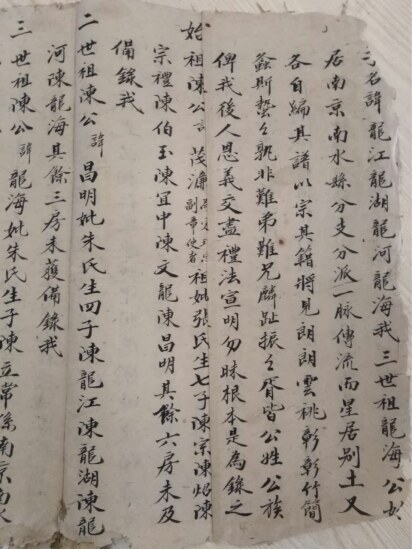 名諱龍江龍湖龍河龍海我 三世祖龍海公
居南京南水縣分支分派一脉傳流而星居別土又
各自編其譜以宗其籍將見朗朗雲桃彰彰竹簡
螽斯蟄々孰非難弟難兄麟趾振々胥皆公姓公族
俾我後人恩義交盡禮法宣明勿昧根本是為錄之
始祖陳公茂濂祖妣張氏生七子陳宗陳烺陳
宗禮陳伯玉陳宜中陳文龍陳昌明其餘六房未及
備錄我
二世祖陳公諱昌明妣朱氏生四子陳龍江陳龍湖陳龍
河陳龍海其餘三房未獲備錄我
三世祖陳公諱龍海妣朱氏生子陳立常係南京南水